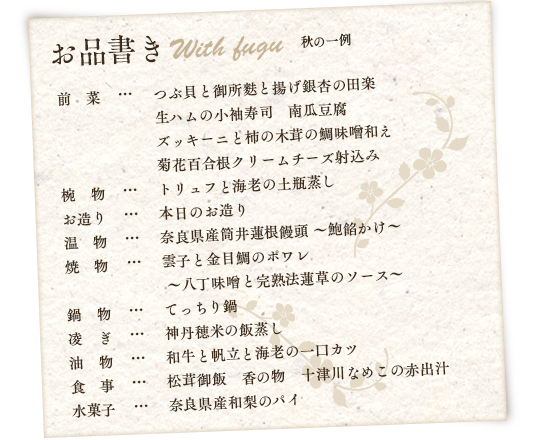 お品書き With fugu 秋の一例
前菜 … つぶ貝と御所麩と揚げ銀杏の田楽
生ハムの小袖寿司 南瓜豆腐
ズッキーニと柿の木茸の鯛味噌和え
菊花百合根クリームチーズ射込み
椀物 … トリュフと海老の土瓶蒸し
お造り … 本日のお造り
温物 … 奈良県産筒井蓮根饅頭 〜鮑餡かけ〜
焼物 … 雲子と金目鯛のポワレ
〜八丁味噌と完熟法蓮草のソース〜
鍋物 … てっちり鍋
凌ぎ … 神丹穂米の飯蒸し
油物 … 和牛と帆立と海老の一口カツ
食事 … 松茸御飯 香の物 十津川なめこの赤出汁
水菓子 … 奈良県産和梨のパイ